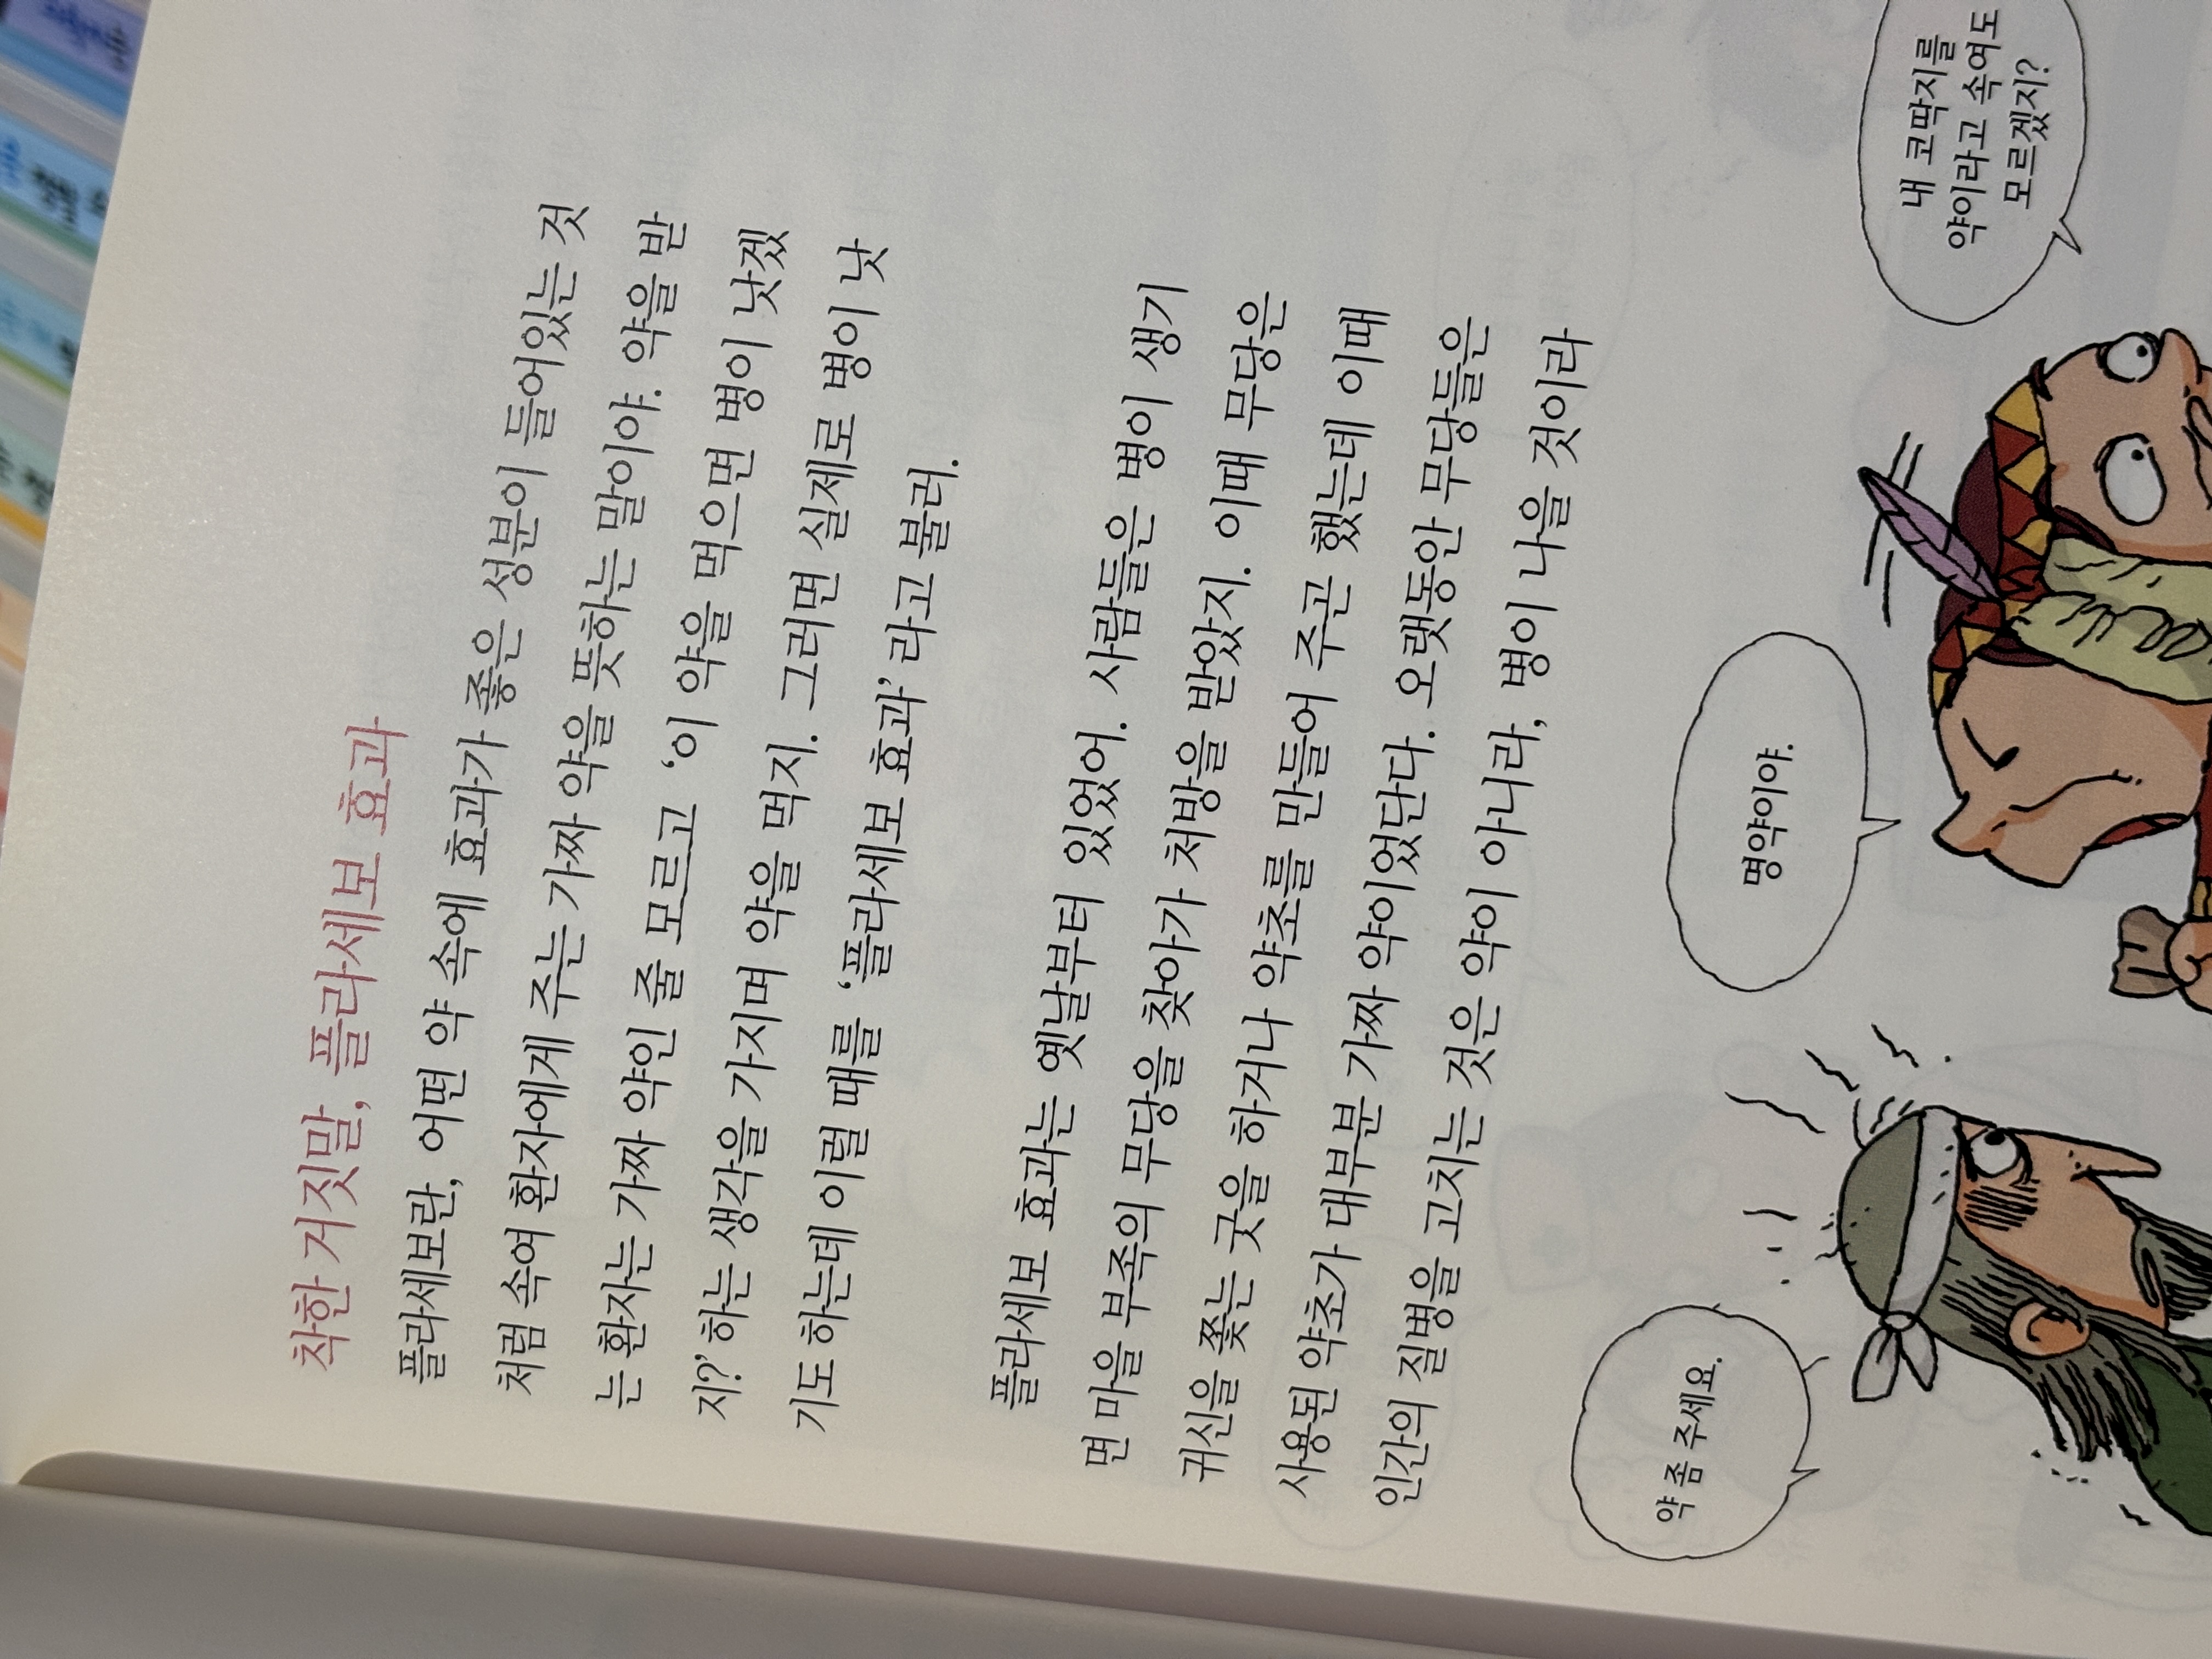 착한 거짓말, 플라세보 효과
플라세보란, 어떤 약 속에 효과가 좋은 성분이 들어있는 것
처럼 속여 환자에게 주는 가짜 약을 뜻하는 말이야. 약을 받
는 환자는 가짜 약인 줄 모르고 ‘이 약을 먹으면 병이 낫겠
지?’ 하는 생각을 가지며 약을 먹지. 그러면 실제로 병이 낫
기도 하는데 이럴 때를 ‘플라세보 효과’ 라고 불러.
플라세보 효과는 옛날부터 있었어. 사람들은 병이 생기
면 마을 부족의 무당을 찾아가 처방을 받았지. 이때 무당은
귀신을 쫓는 굿을 하거나 약초를 만들어 주곤 했는데 이때
사용된 약초가 대부분 가짜 약이었단다. 오랫동안 무당들은
인간의 질병을 고치는 것은 약이 아니라, 병이 나을 것이라
약 좀 주세요.
명약이야.
내 코딱지를
약이라고 속여도
모르겠지?